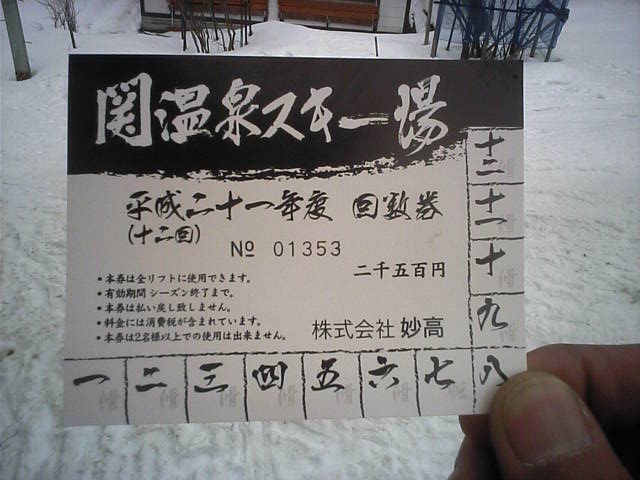 関温泉スキー場
平成二十一年度 回数券
(十二回)
№ 01353
二千五百円
・本券は全リフトに使用できます。
・有効期間 シーズン終了まで。
・本券は払い戻し致しません。
・料金には消費税が含まれています。
・本券は2名様以上での使用は出来ません。
株式会社 妙高
十二
十一
十
九
一 二 三 四 五 六 七 八